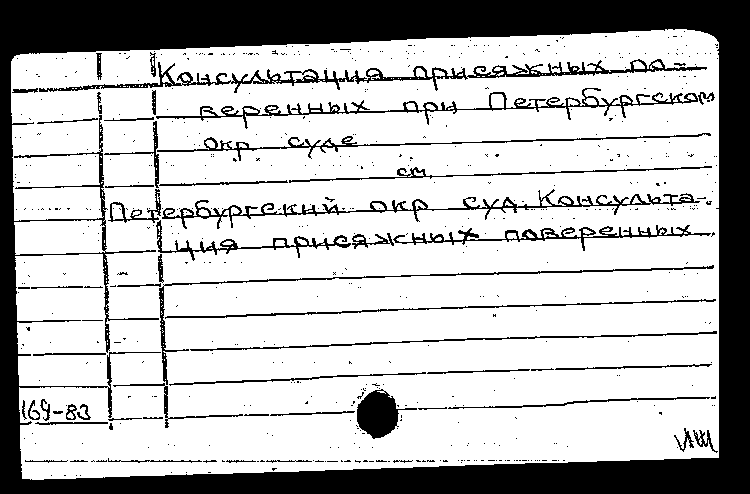 Консультация присяжных по-
веренных при Петербургском
окр суде
см.
Петербургский окр суд. Консульта-
ция присяжных поверенных.
169-83
ИШ